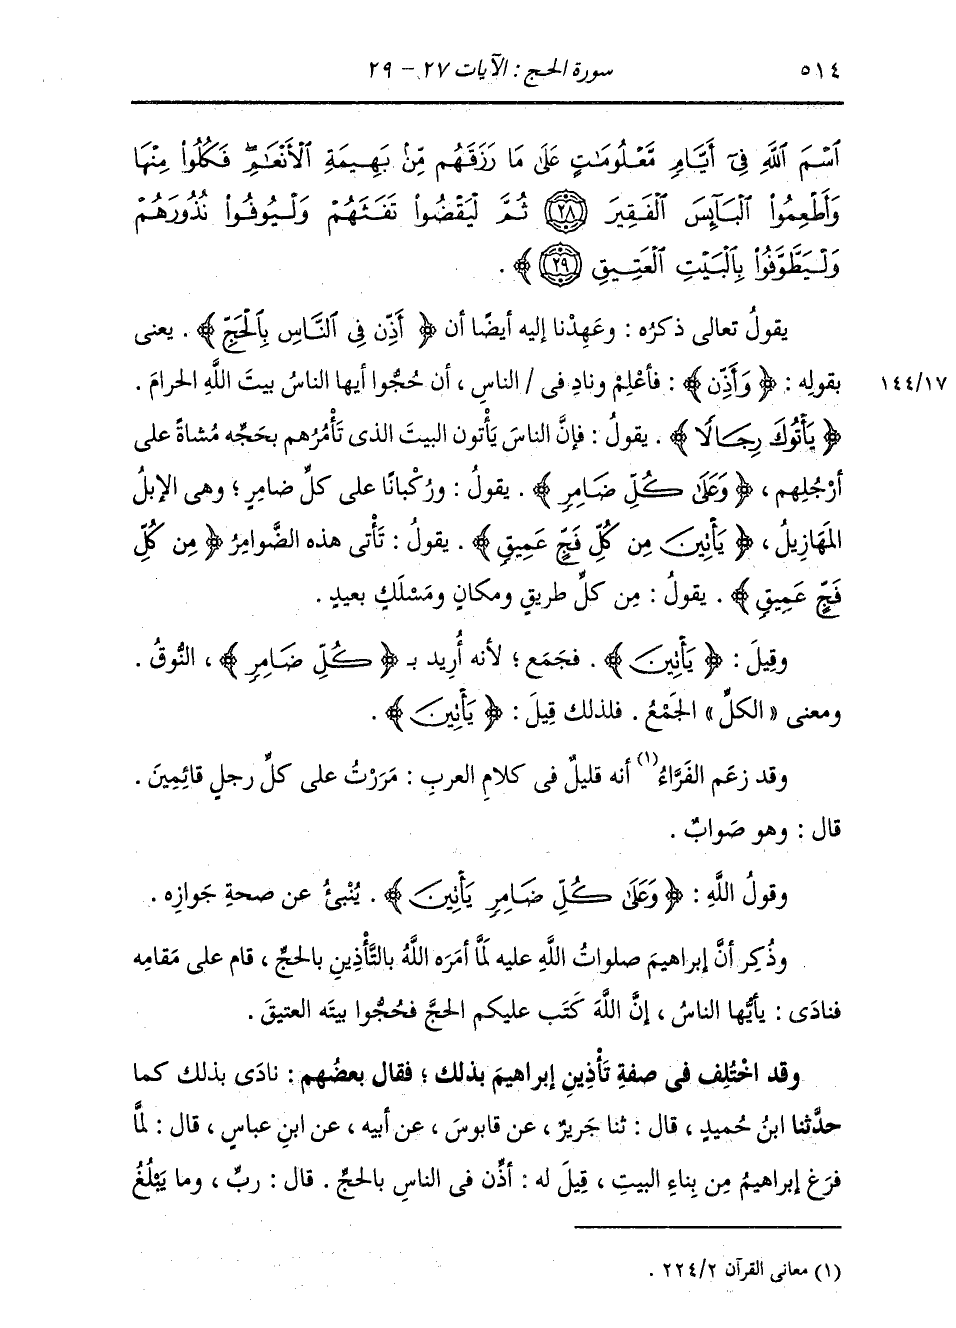 ٥١٤ سورة الحج : الآيات ٢٧ - ٢٩
ٱسْمَ ٱللَّهِ فِىٓ أَيَّامٍ مَّعْلُومَٰتٍ عَلَىٰ مَا رَزَقَهُم مِّنۢ بَهِيمَةِ ٱلْأَنْعَٰمِ ۖ فَكُلُوا۟ مِنْهَا
وَأَطْعِمُوا۟ ٱلْبَآئِسَ ٱلْفَقِيرَ ﴿٢٨﴾ ثُمَّ لْيَقْضُوا۟ تَفَثَهُمْ وَلْيُوفُوا۟ نُذُورَهُمْ
وَلْيَطَّوَّفُوا۟ بِٱلْبَيْتِ ٱلْعَتِيقِ ﴿٢٩﴾ ﴾ .
يقولُ تعالى ذكرُه : وعَهِدْنا إليه أيضًا أن ﴿ أَذِّن فِى ٱلنَّاسِ بِٱلْحَجِّ ﴾ . يعنى
بقولِه : ﴿ وَأَذِّن ﴾ : فأعْلِمْ ونادِ فى / الناسِ ، أن حُجُّوا أيها الناسُ بيتَ اللَّهِ الحرامَ . ١٤٤/١٧
﴿ يَأْتُوكَ رِجَالًا ﴾ . يقولُ : فإنَّ الناسَ يَأْتون البيتَ الذى تَأْمُرُهم بحَجِّه مُشاةً على
أرْجُلِهم ، ﴿ وَعَلَىٰ كُلِّ ضَامِرٍ ﴾ . يقولُ : ورُكْبانًا على كلِّ ضامِرٍ ؛ وهى الإبلُ
المَهازِيلُ ، ﴿ يَأْتِينَ مِن كُلِّ فَجٍّ عَمِيقٍ ﴾ . يقولُ : تَأْتى هذه الضَّوامِرُ ﴿ مِن كُلِّ
فَجٍّ عَمِيقٍ ﴾ . يقولُ : مِن كلِّ طريقٍ ومكانٍ ومَسْلَكٍ بعيدٍ .
وقِيلَ : ﴿ يَأْتِينَ ﴾ . فجَمَع ؛ لأنه أُرِيد بـ ﴿ كُلِّ ضَامِرٍ ﴾ ، النُّوقُ .
ومعنى « الكلِّ » الجَمْعُ . فلذلك قِيلَ : ﴿ يَأْتِينَ ﴾ .
وقد زعَم الفَرَّاءُ(١) أنه قليلٌ فى كلامِ العربِ : مَرَرْتُ على كلِّ رجلٍ قائِمِينَ .
قال : وهو صَوابٌ .
وقولُ اللَّهِ : ﴿ وَعَلَىٰ كُلِّ ضَامِرٍ يَأْتِينَ ﴾ . يُنْبِئُ عن صحةِ جَوازِه .
وذُكِر أنَّ إبراهيمَ صلواتُ اللَّهِ عليه لَمَّا أمَرَه اللَّهُ بالتَّأْذِينِ بالحجِّ ، قام على مَقامِه
فنادَى : يأيُّها الناسُ ، إنَّ اللَّهَ كَتَب عليكم الحجَّ فحُجُّوا بيتَه العتيقَ .
وقد اخْتُلِف فى صفةِ تَأْذِينِ إبراهيمَ بذلك ؛ فقال بعضُهم : نادَى بذلك كما
حدَّثنا ابنُ حُميدٍ ، قال : ثنا جَريرٌ ، عن قابوسَ ، عن أبيه ، عن ابنِ عباسٍ ، قال : لمَّا
فرَغ إبراهيمُ مِن بِناءِ البيتِ ، قِيلَ له : أذِّن فى الناسِ بالحجِّ . قال : ربِّ ، وما يَبْلُغُ
(١) معانى القرآن ٢٢٤/٢ .